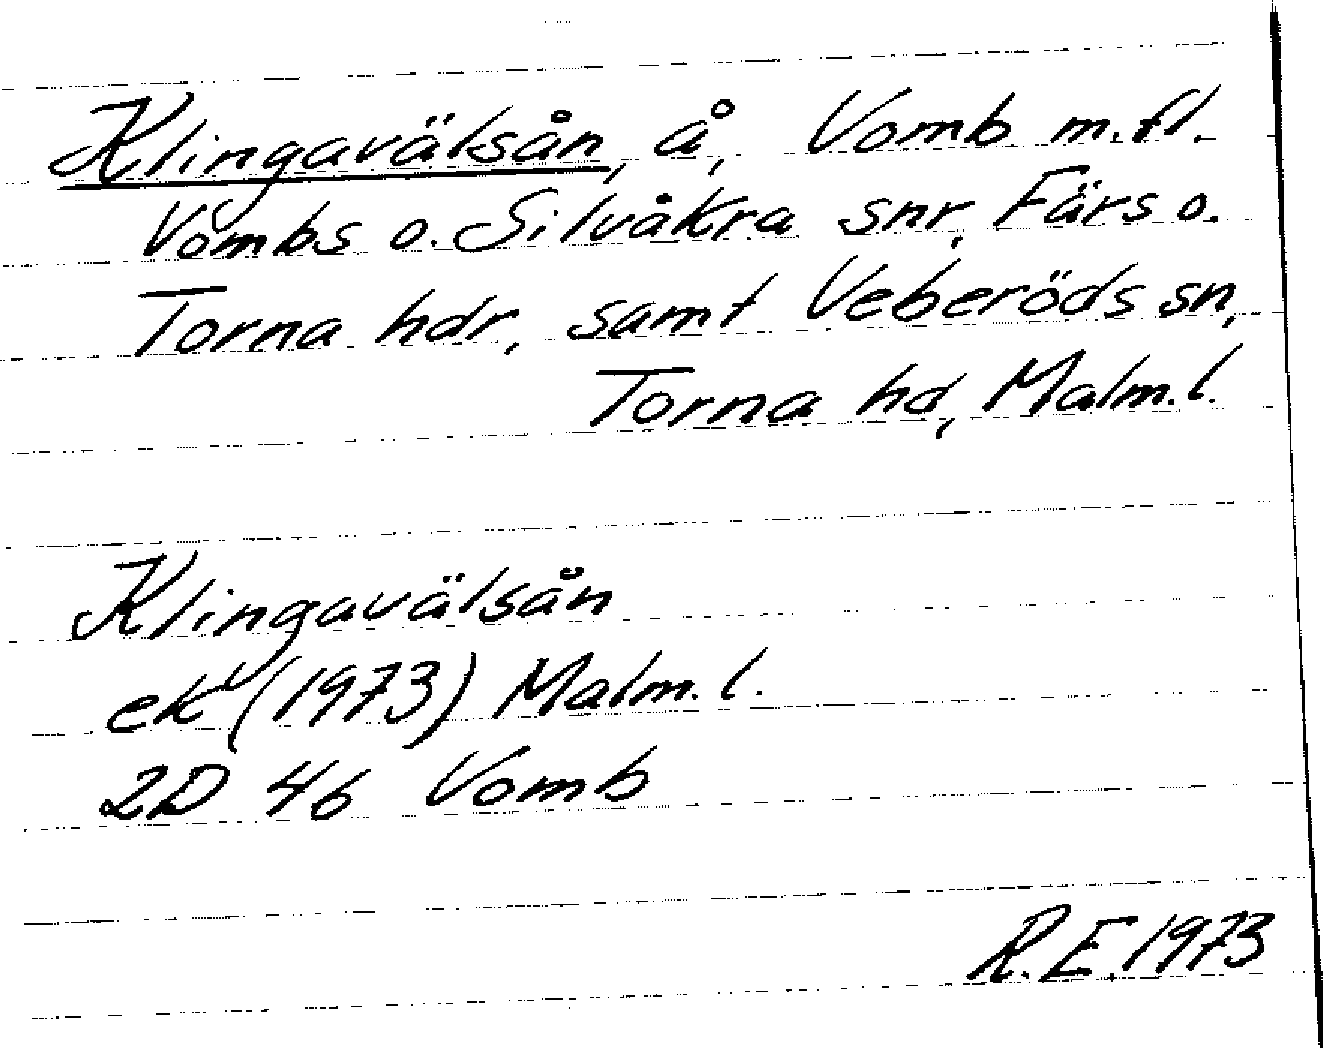 Klingavälsån, å, Vomb m.fl.
Vombs o. Silvåkra snr, Färs o.
Torna hdr, samt Veberöds sn,
Torna hd, Malm.l.
Klingavälsån
ek (1973) Malm.l.
2D 4b Vomb
R.E.1973